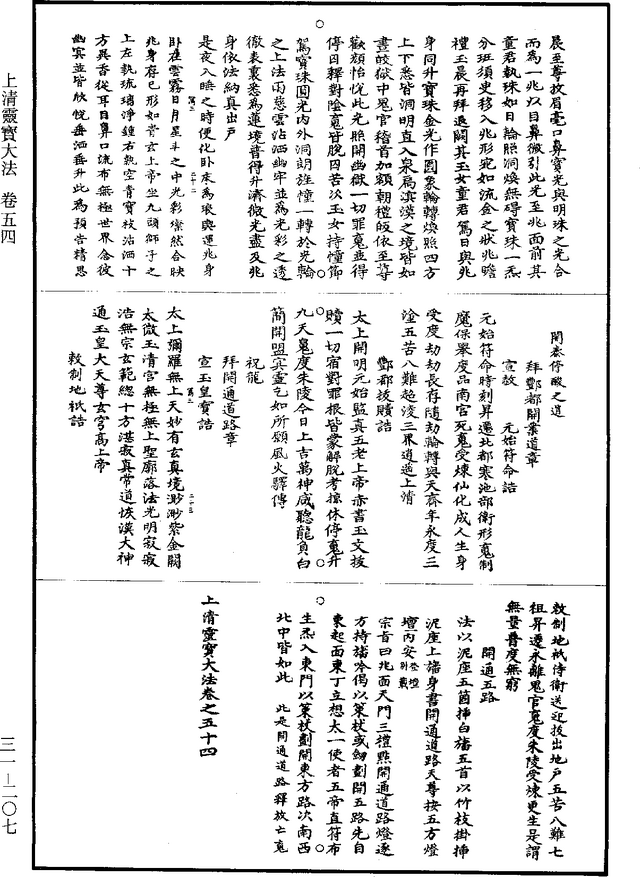 晨至尊故眉毫口鼻寶光與明珠之光合
而為一兆以目鼻微引此光至兆面前其
童君執珠如日輪照洞煥無碍寶珠一炁
分班須臾移入兆形宛如流金之狀兆瞻
禮玉晨再拜退闕其玉女童君駕日與兆
身同升寶珠金光作圓象輪轉煥照四方
上下悉皆洞明直入泉扃溟漠之境皆如
晝皎獄中鬼官稽首加額朝禮皈依至尊
歡顏怡悅此光照開幽獄一切罪䰟並得
停因釋對陰䰟皆脫因苦次玉女持幢節
駕寶珠圓光內外洞朗旌幢一轉於光輪
之上法雨慈雲沾洒幽牢並為光彩之透
徹表裏悉為蓮境普得升濟微光盡及兆
身依法納真出戶
是夜入睡之時便化卧床為琅輿運兆身
卧在雲霧日月星斗之中光彩燦然合映
兆身存已形如青玄上帝坐九頭師子之
上左執琉璃淨鍾右執空青寶枝沾洒十
方異香從耳目鼻口流布無極世界念彼
幽冥並皆欣悅垂洒垂升此為預告精思
關泰停酸之道
拜酆都開業道章
宣敕 元始符命誥
元始符命時刻昇遷北都寒池部衛形䰟制
魔保舉度品南宮死䰟受煉仙化成人生身
受度劫劫長存隨劫輪轉與天齊年永度三
塗五苦八難超淩三界逍遙上清
酆都拔贖誥
太上開明元始監真五老上帝赤書玉文拔
贖一切宿對罪根皆蒙解脫考掠休停䰟升
九天䰟度朱陵今日上吉萬神咸聽龍負白
簡開盟真靈乞如所願風火驛傳
祝龍
拜開通道路章
宣玉皇寶誥
太上彌羅無上天妙有玄真境渺渺紫金闕
太微玉清宮無極無上聖廓落法光明寂寂
浩無宗玄範總十方湛寂真常道恢漠大神
通玉皇大天尊玄穹高上帝
敕制地祇誥
敕制地祇侍衛送迎拔出地戶五苦八難七
祖昇遷永離鬼官䰟度朱陵受煉更生是謂
無量普度無窮
開通五路
法以泥座五箇挿白旛五首以竹枝掛挿
泥座上旛身書開通道路天尊按五方燈
壇內安
宗首曰北面天門三禮點開通道路燈逐
方持旛吟偈以策杖或劒劃開五路先自
東起面東丁立想太一使者五帝直符布
生炁入東門以策杖劃開東方路次南西
北中皆如此 此是開通道路釋放亡䰟
上清靈寶大法卷之五十四
上清靈寶大法 卷五四
三一—二〇七